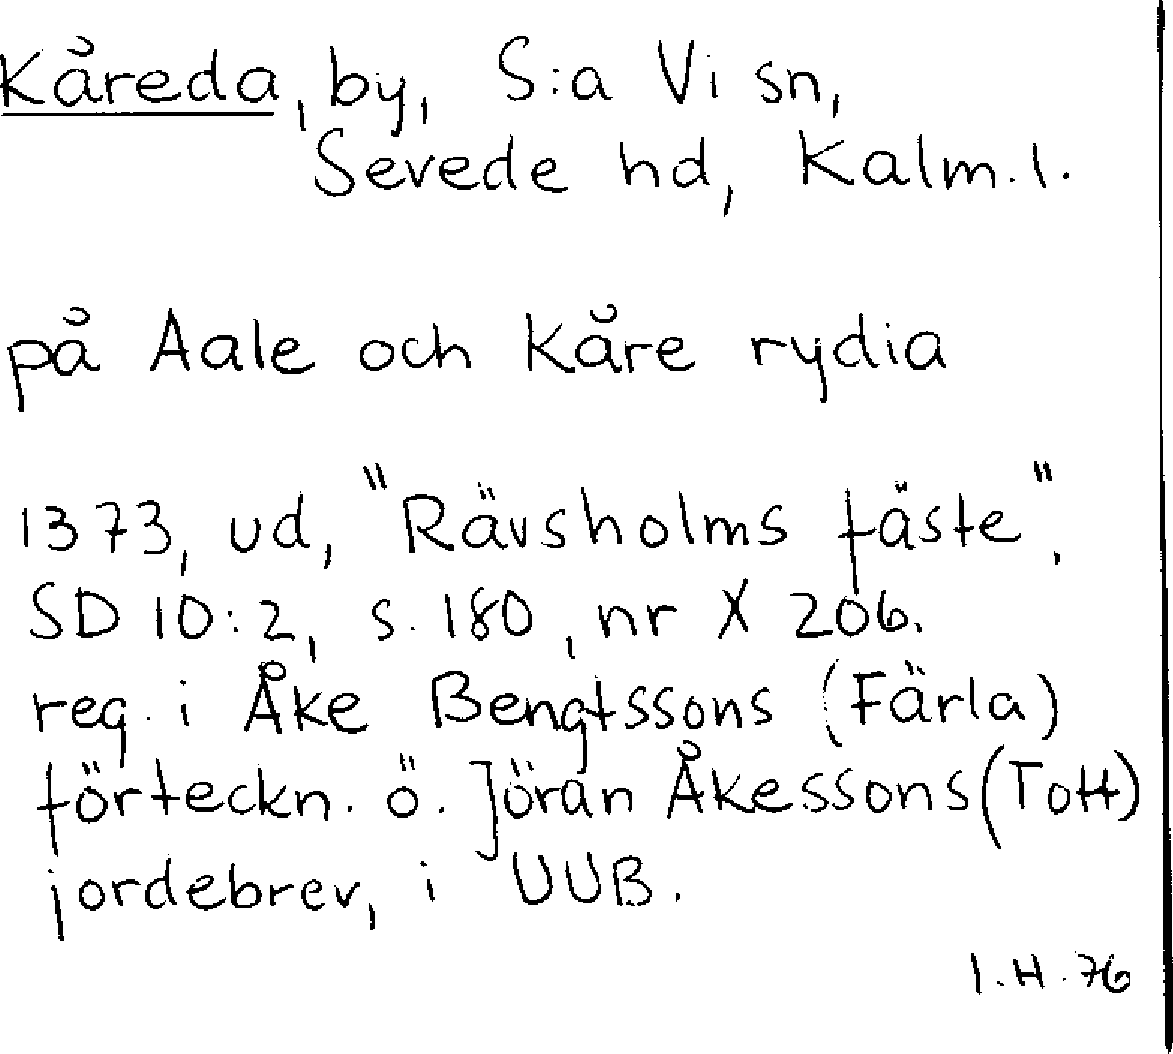 Kåreda, by, S:a Vi sn,
Sevede hd, Kalm.l.
på Aale och Kåre rydia
1373, ud, "Rävsholms fäste",
SD 10:2, s. 180, nr X 206.
reg. i Åke Bengtssons (Färla)
förteckn. ö. Jöran Åkessons (Tott)
jordebrev, i UUB.
I.H. 76